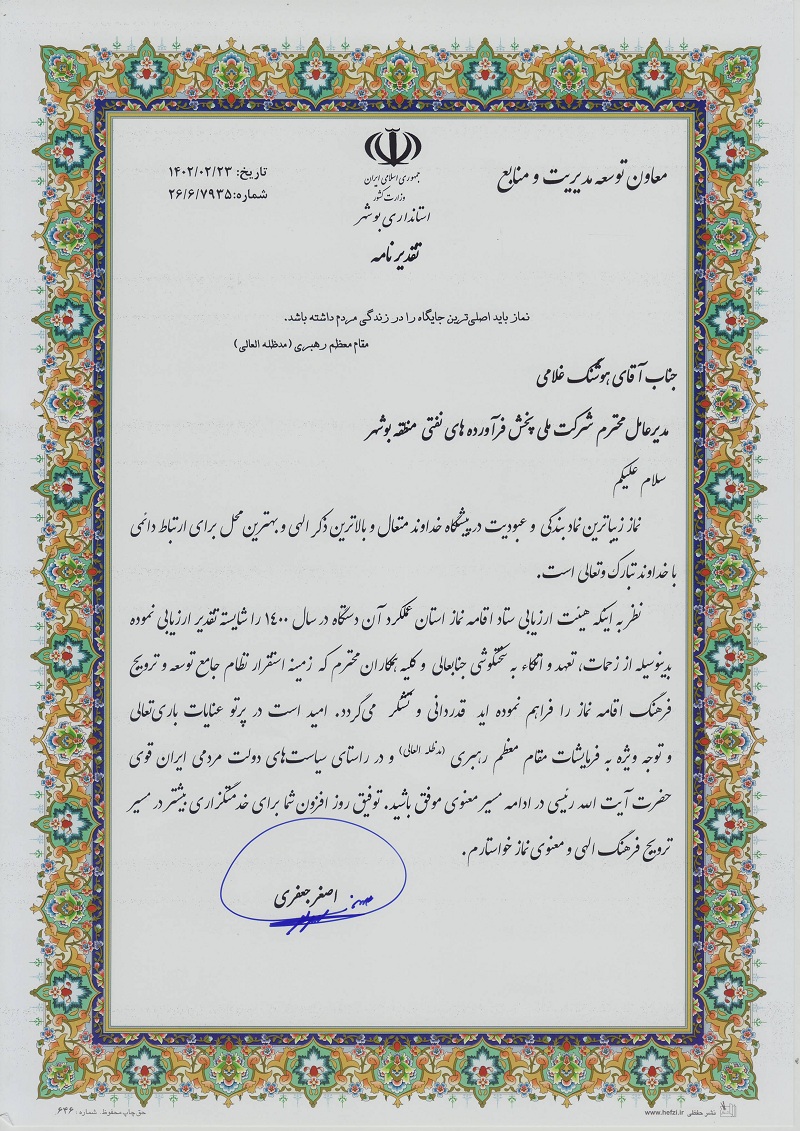 معاون توسعه مدیریت و منابع
جمهوری اسلامی ایران
وزارت کشور
استانداری بوشهر
تقدیر نامه
تاریخ: ۱۴۰۲/۰۲/۲۳
شماره: ۲۶/۶/۷۹۳۵
نماز باید اصلی‌ترین جایگاه را در زندگی مردم داشته باشد.
مقام معظم رهبری (مدظله العالی)
جناب آقای هوشنگ غلامی
مدیرعامل محترم شرکت ملی پخش فرآورده های نفتی منطقه بوشهر
سلام علیکم
نماز زیباترین نماد بندگی و عبودیت در پیشگاه خداوند متعال و بالاترین ذکر الهی و بهترین محل برای ارتباط دائمی
با خداوند تبارک وتعالی است.
نظر به اینکه هیئت ارزیابی ستاد اقامه نماز استان عملکرد آن دستگاه در سال ۱۴۰۰ را شایسته تقدیر ارزیابی نموده
بدینوسیله از زحمات، تعهد و اتکاء به سختکوشی جنابعالی و کلیه همکاران محترم که زمینه استقرار نظام جامع توسعه و ترویج
فرهنگ اقامه نماز را فراهم نموده اید قدردانی و تشکر می‌گردد. امید است در پرتو عنایات باری‌تعالی
و توجه ویژه به فرمایشات مقام معظم رهبری (مدظله العالی) و در راستای سیاست‌های دولت مردمی ایران قوی
حضرت آیت الله رئیسی در ادامه مسیر معنوی موفق باشید. توفیق روز افزون شما برای خدمتگزاری بیشتر در مسیر
ترویج فرهنگ الهی و معنوی نماز خواستارم.
اصغر جعفری
نشر حفظی www.hefzi.ir
حق چاپ محفوظ. شماره: ۶۴۶